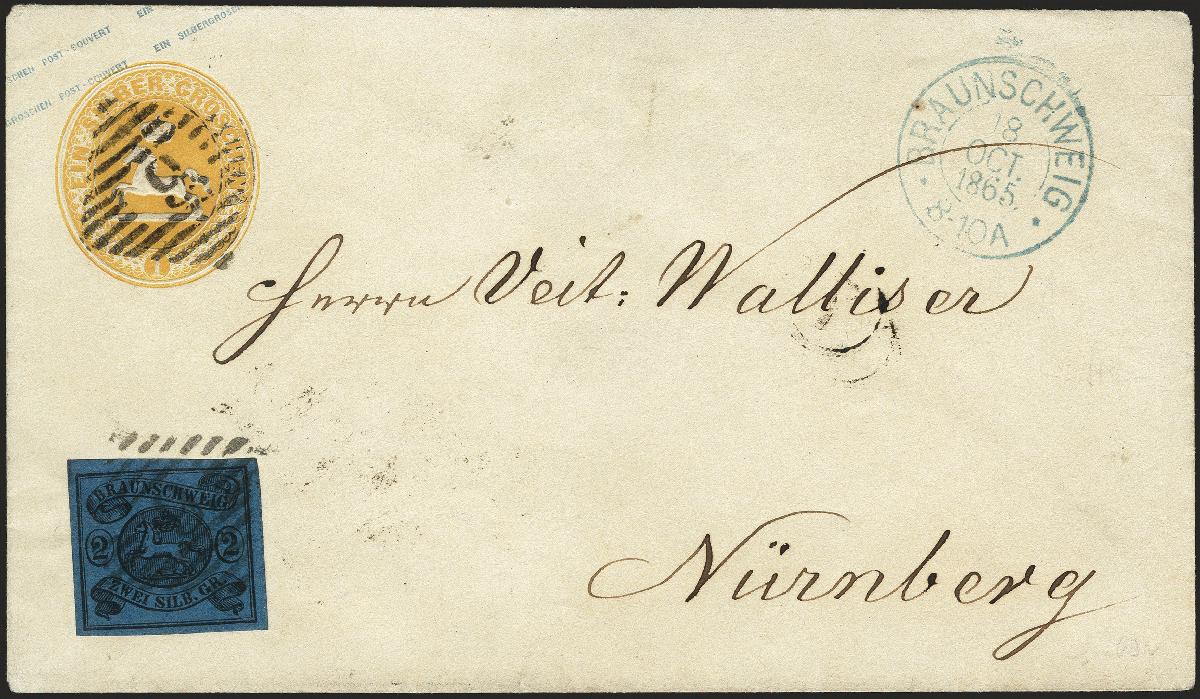 EIN
SCHEN POST-COUVERT EIN SILBERGROSCHEN
GROSCHEN POST-COUVERT
EIN SILBER GROSCHEN
1
BRAUNSCHWEIG
18
OCT.
1865.
8-10A
Herrn Veit: Walliser
BRAUNSCHWEIG
2 2
ZWEI SILB. GR.
Nürnberg